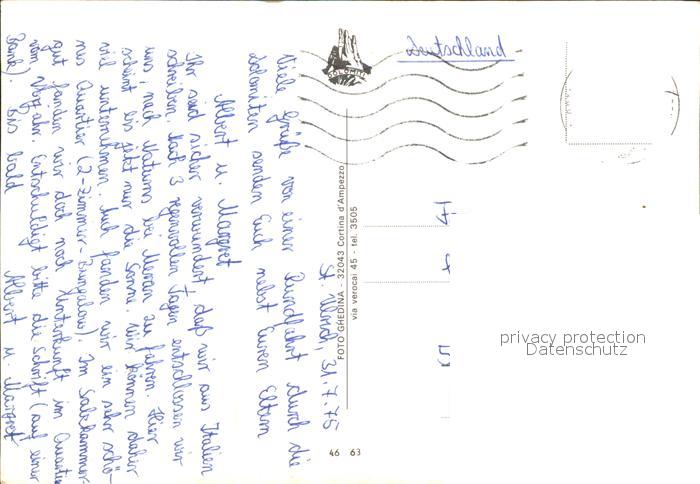 St. Ulrich, 31.7.75
Viele Grüße von einer Rundfahrt durch die
Dolomiten senden Euch nebst Euren Eltern
Albert u. Margret
Ihr seid sicher verwundert, daß wir aus Italien
schreiben. Nach 3 regenvollen Tagen entschlossen wir
uns, nach Naturns bei Meran zu fahren. Hier
scheint bis jetzt nur die Sonne. Wir können daher
viel unternehmen. Auch fanden wir ein sehr schö-
nes Quartier (2-Zimmer-Bungalow). Im Salzkammer-
gut fanden wir doch noch Unterkunft im Quartier
vom Vorjahr. Entschuldigt bitte die Schrift (auf einer
Bank). Bis bald Albert u. Margret
Deutschland
DOLOMITI
FOTO GHEDINA - 32043 Cortina d'Ampezzo
via verocai 45 - tel. 3505
46 63
privacy protection
Datenschutz